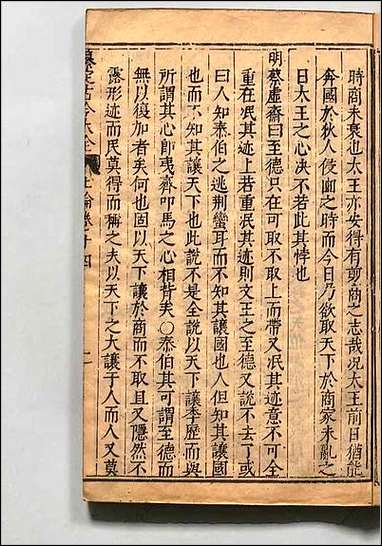 時商未衰也太王亦安得有剪商之志哉况太王前日猶能
弃國於狄人侵豳之時而今日乃欲取天下於商家未亂之
日太王之心决不若此其悖也
明蔡虚齋曰至德只在可取不取上而帶又泯其迹意不可全
重在泯其迹上若重泯其迹則文王之至德又説不去了或
曰人知泰伯之逃荆蠻耳而不知其讓國也人但知其讓國
也而不知其讓天下也此説不是全説以天下讓季歷而與
所謂其心即夷齋叩馬之心相背矣〇泰伯其可謂至德而
無以復加者矣何也固以天下讓於商而不取且又隱然不
露形迹而民莫得而稱之夫以天下之大讓于人而人又莫
上論卷十四
二